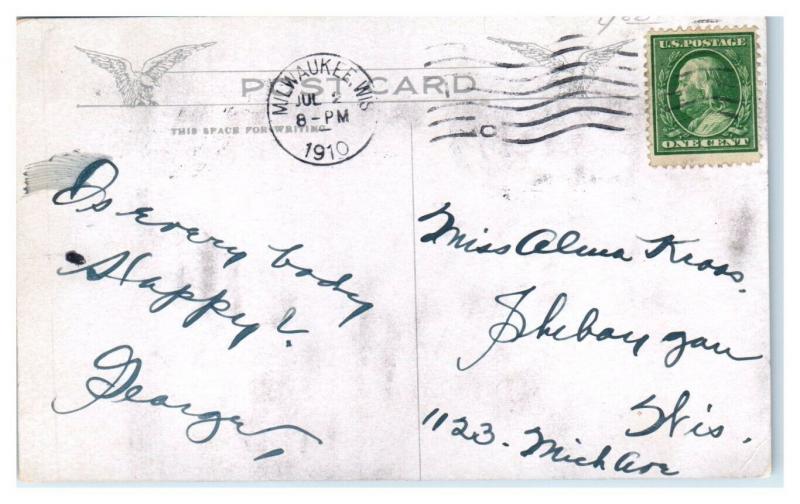 POST CARD
THIS SPACE FOR WRITING
MILWAUKEE, WIS
JUL 2
8-PM
1910
C
U.S. POSTAGE
ONE CENT
Is every body
Happy?
George,
Miss Alma Kroos.
Sheboygan
Wis.
1123. Mich Ave